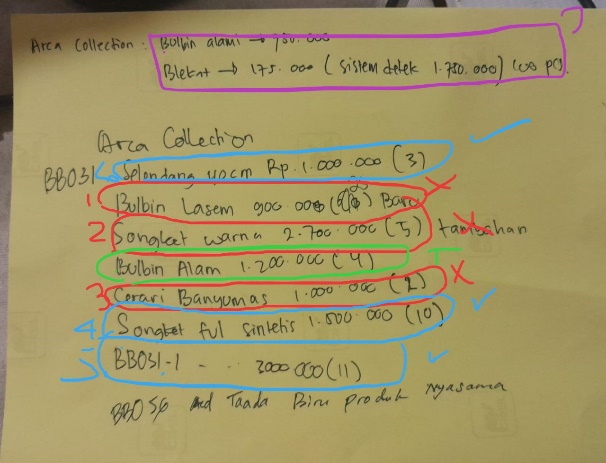 Arca Collection : Bulbin alami → 750.000
Blekat → 175.000 ( sistem detek 1.750.000) 100 pcs.
Arca Collection
BB031 Selendang 40cm Rp. 1.000.000 (3)
1 Bulbin Lasem 900.000 Baru
2 Songket warna 2.700.000 (5) tambahan
Bulbin Alam 1.200.000 (4) T
3 Cerari Banyumas 1.000.000 (2)
4 Songket ful sintetis 1.500.000 (10)
5 BB031-1 - .. 2000 000 (11)
BB056 Taada Biru produk nyasama